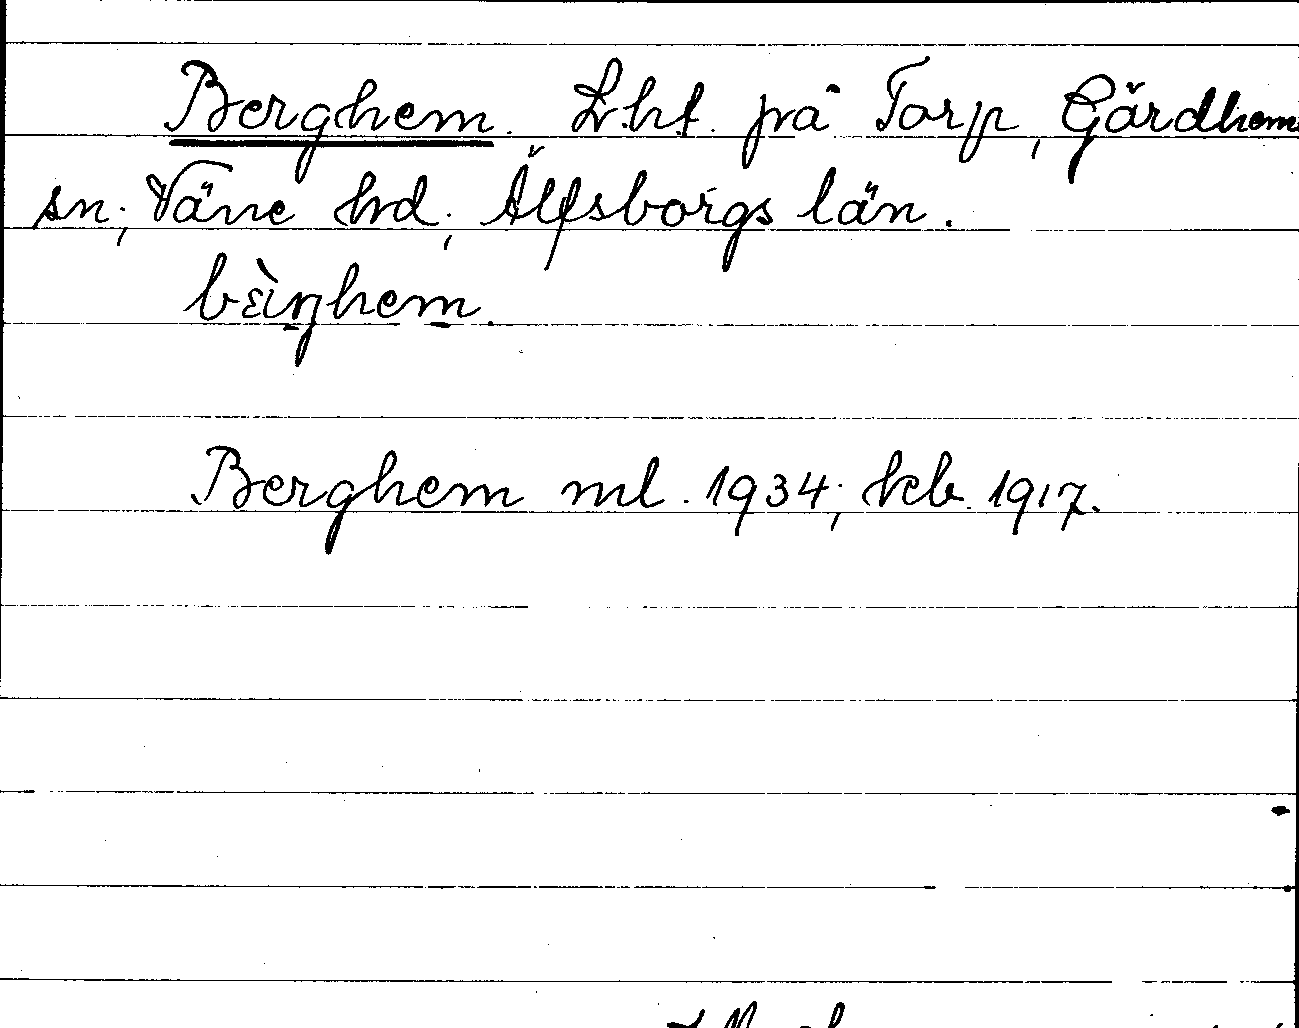 Berghem. Lht. på Torp, Gärdhem
sn; Väne hd; Älfsborgs län.
bèi̯ŋhem.
Berghem ml. 1934; kcb. 1917.